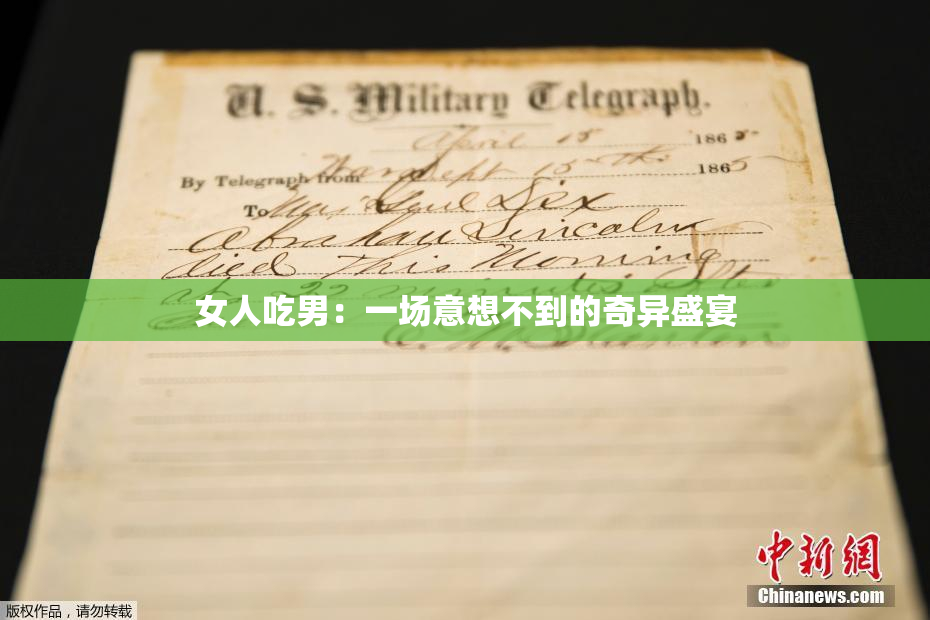 U. S. Military Telegraph.
April 15 1865
By Telegraph from War Dept 15th 1865
To Maj Genl Dix
Abraham Lincoln
died This Morning
at 22 minutes after
女人吃男：一场意想不到的奇异盛宴
中新网
Chinanews.com
版权作品，请勿转载